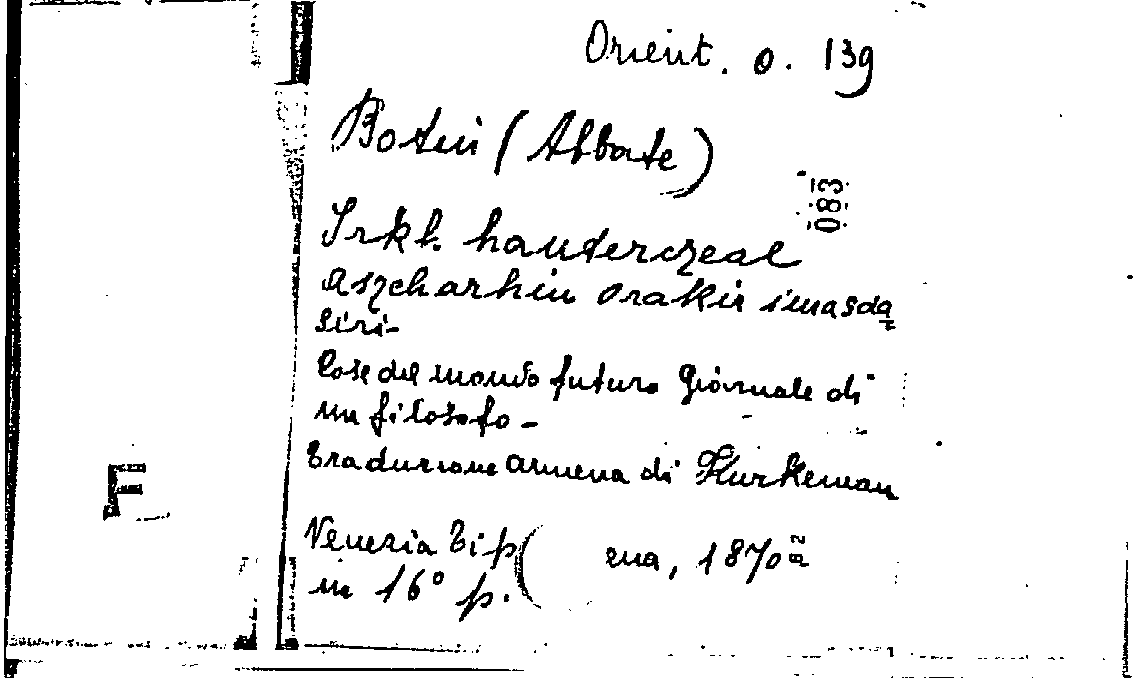 Orient. o. 139
Botin (Abbate)
083
Irkh. hanterczeal
aszcharhin orakir imasda
siri-
Cose del mondo futuro Giornale di
un filosofo -
Traduzione armena di Kurkeman
F
Venezia Tip ( ena, 1870
in 16° p.